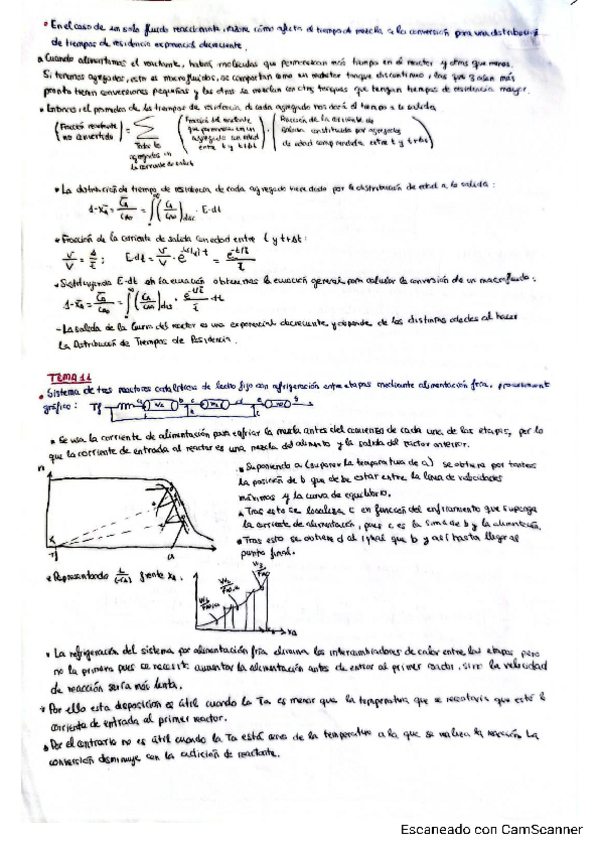 • En el caso de un solo fluido reaccionante, explique cómo afecta el tiempo de mezcla a la conversión para una distribución
de tiempos de residencia exponencial decreciente.
Cuando alimentamos el reactante, habrá moléculas que permanezcan más tiempo en el reactor y otras que menos.
Si tenemos agregados, esto es macrofluidos, se comportan como un reactor tanque discontinuo, las que salen más
pronto tienen conversiones pequeñas y las otras se mezclan con otros tanques que tengan tiempos de residencia mayor.
• Entonces el promedio de los tiempos de residencia de cada agregado nos dará el tiempo a la salida
(Fracción reactante no convertido) = Σ Todos los agregados en la corriente de salida (Fracción del reactante que permanece en un agregado con edad entre t y t+Δt) · (Fracción de la corriente de salida constituida por agregados de edad comprendida entre t y t+Δt)
• La distribución de tiempo de residencia de cada agregado viene dado por la distribución de edad a la salida:
1-X̄A = C̄A/CA0 = ∫(CA/CA0)disc · E·dt
• Fracción de la corriente de salida con edad entre t y t+Δt:
• Sustituyendo E·dt en la ecuación obtenemos la ecuación general para calcular la conversión de un macrofluido:
- La salida de la curva del reactor es una exponencial decreciente y depende de las distintas edades al hacer
la Distribución de Tiempos de Residencia.
TEMA 11
• Sistema de tres reactores catalíticos de lecho fijo con refrigeración entre etapas mediante alimentación fría,
gráfico: Tf
• Se usa la corriente de alimentación para enfriar la mezcla antes del comienzo de cada una de las etapas, por lo
que la corriente de entrada al reactor es una mezcla del alimento y la salida del reactor anterior.
• Suponiendo a (suponer la temperatura de a) se obtiene por tanteos
la posición de b que debe estar entre la línea de velocidades
máximas y la curva de equilibrio.
• Tras esto se localiza c en función del enfriamiento que suponga
la corriente de alimentación, pues c es la suma de b y la alimentación.
• Tras esto se obtiene d al igual que b y así hasta llegar al
punto final.
• Representando 1/(-rA) frente XA.
XA
• La refrigeración del sistema por alimentación fría elimina los intercambiadores de calor entre las etapas pero
no la primera pues se necesita aumentar la alimentación antes de entrar al primer reactor, sino la velocidad
de reacción sería más lenta.
• Por ello esta disposición es útil cuando la Ta es menor que la temperatura que se necesitaría que esté la
corriente de entrada al primer reactor.
• Por el contrario no es útil cuando la Ta está cerca de la temperatura a la que se realiza la reacción. La
conversión disminuye con la adición de reactante.
Escaneado con CamScanner